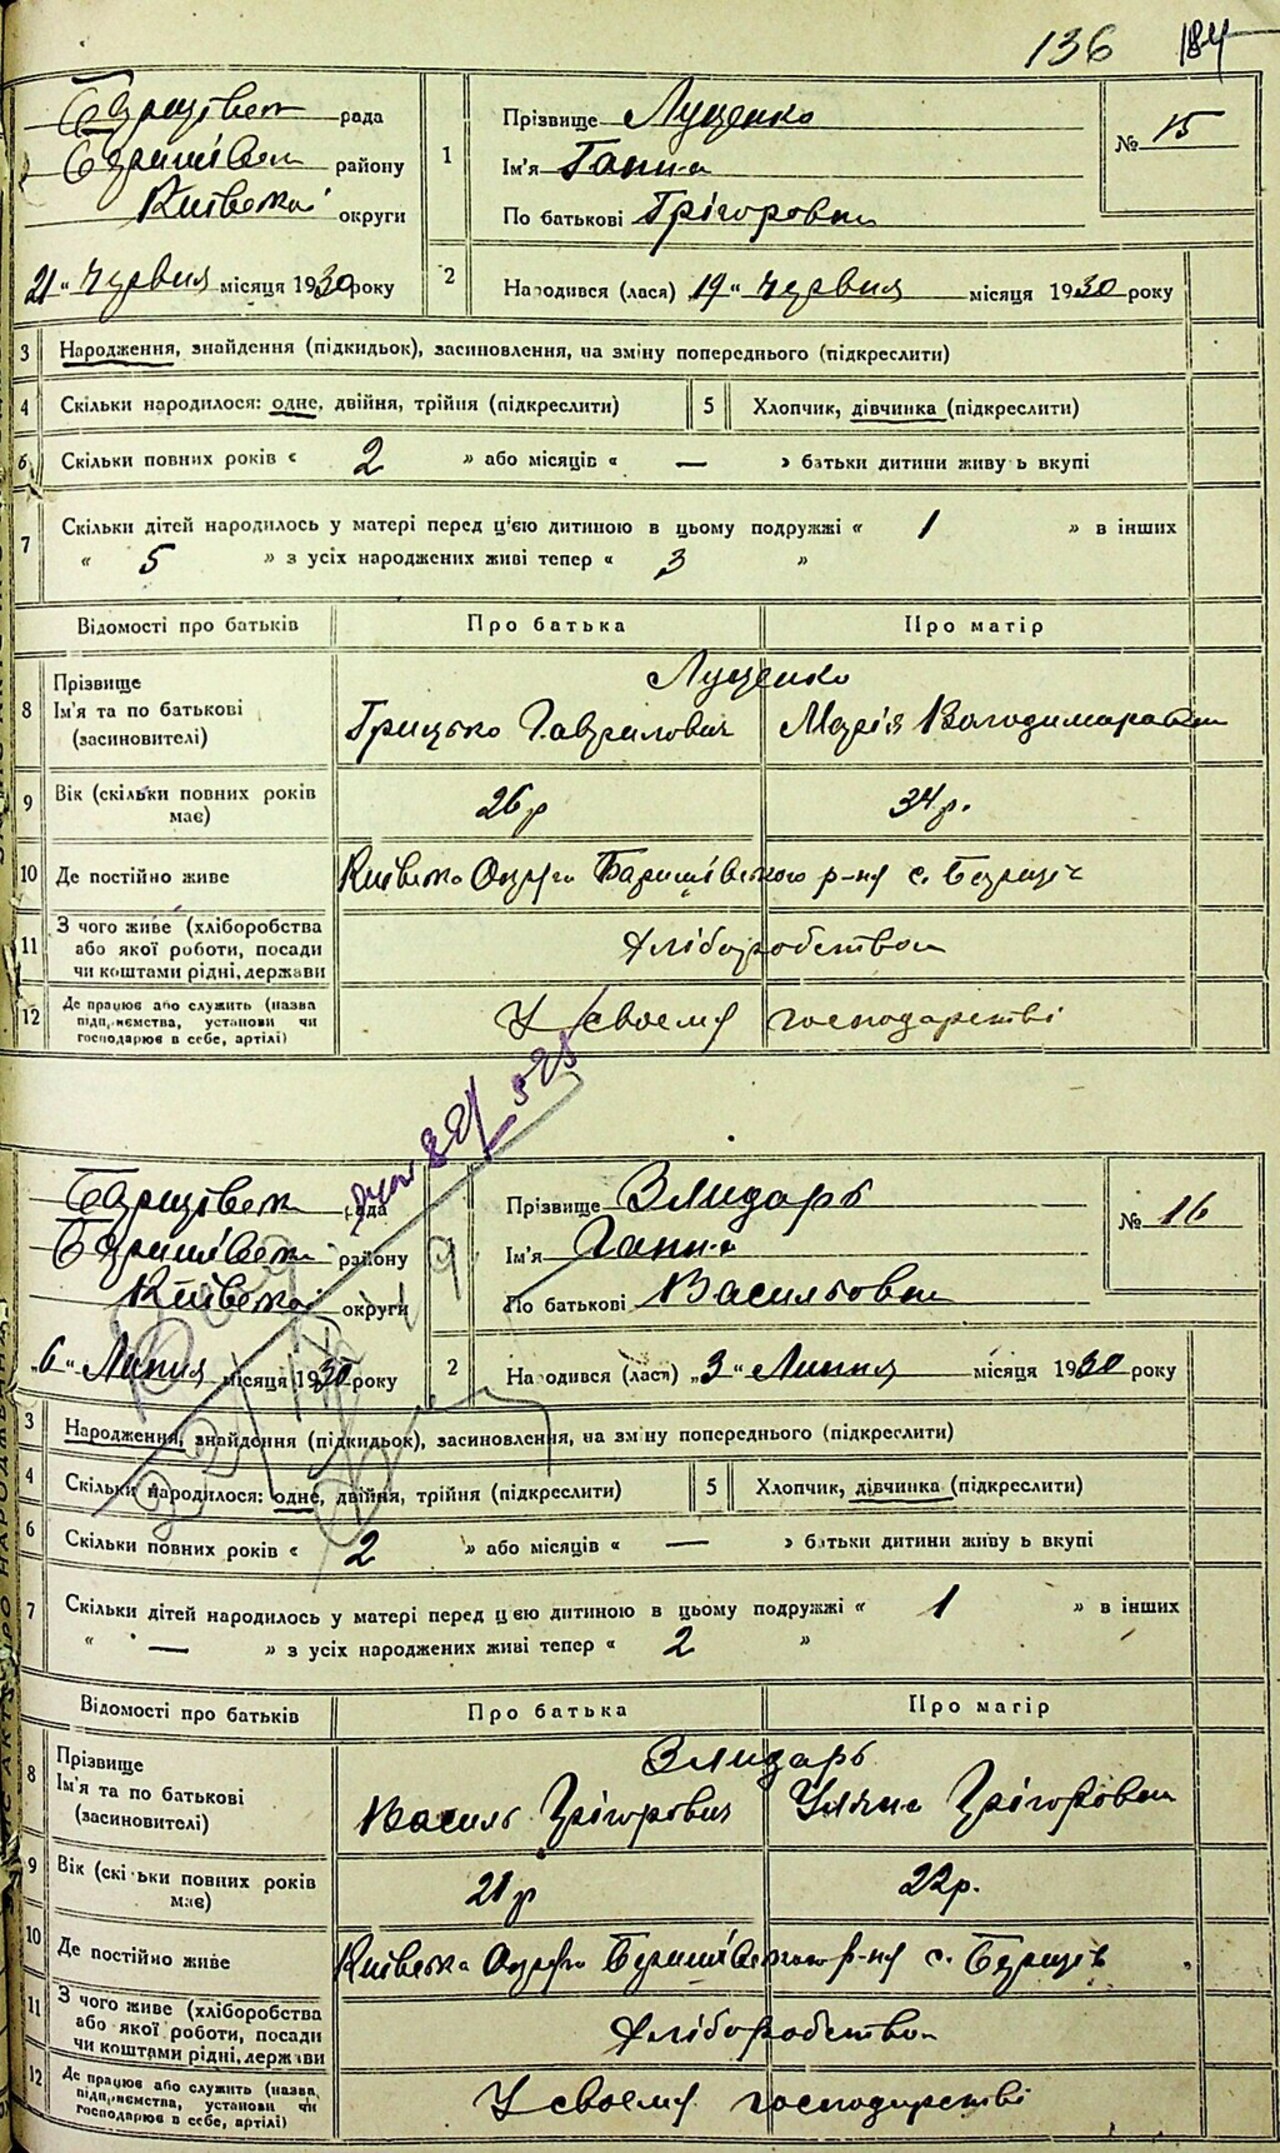 136 184
Борщівськ рада
Баришівськ району
Київської округи
1
Прізвище Луценко
Ім'я Ганна
По батькові Грігоровна
№ 15
21 " Червня місяця 1930 року
2
Народився (лася) „19 " червня місяця 1930 року
3 Народження, знайдення (підкидьок), засиновлення, на зміну попереднього (підкреслити)
4 Скільки народилося: одне, двійня, трійня (підкреслити) 5 Хлопчик, дівчинка (підкреслити)
6 Скільки повних років « 2 » або місяців « — » батьки дитини живуть вкупі
7 Скільки дітей народилось у матері перед ц'єю дитиною в цьому подружжі « 1 » в інших
« 5 » з усіх народжених живі тепер « 3 »
Відомості про батьків Про батька Про матір
8 Прізвище
Ім'я та по батькові
(засиновителі)
Луценко
Грицько Гаврилович Марія Володимировна
9 Вік (скільки повних років має) 26 р 34 р.
10 Де постійно живе Київська Округа Баришівського р-ну с. Борщів
11 З чого живе (хліборобства
або якої роботи, посади
чи коштами рідні, держави
Хліборобством
12 Де працює або служить (назва
підприємства, установи чи
господарює в себе, артілі)
У своєму господарстві
528
Борщівськ рада
Баришівськ району
Київської округи
Прізвище Злидарь
Ім'я Ганна
По батькові Васильовна
№ 16
„6 " Липня місяця 1930 року
2
Народився (лася) „3 " Липня місяця 1930 року
3 Народження, знайдення (підкидьок), засиновлення, на зміну попереднього (підкреслити)
4 Скільки народилося: одне, двійня, трійня (підкреслити) 5 Хлопчик, дівчинка (підкреслити)
6 Скільки повних років « 2 » або місяців « — » батьки дитини живуть вкупі
7 Скільки дітей народилось у матері перед цією дитиною в цьому подружжі « 1 » в інших
« — » з усіх народжених живі тепер « 2 »
Відомості про батьків Про батька Про матір
8 Прізвище
Ім'я та по батькові
(засиновителі)
Злидарь
Василь Грігорович Уляна Грігоровна
9 Вік (скільки повних років має) 21 р 22 р.
10 Де постійно живе Київська Округа Баришівського р-ну с. Борщів
11 З чого живе (хліборобства
або якої роботи, посади
чи коштами рідні, держави
Хліборобством
12 Де працює або служить (назва
підприємства, установи чи
господарює в себе, артілі)
У своєму господарстві